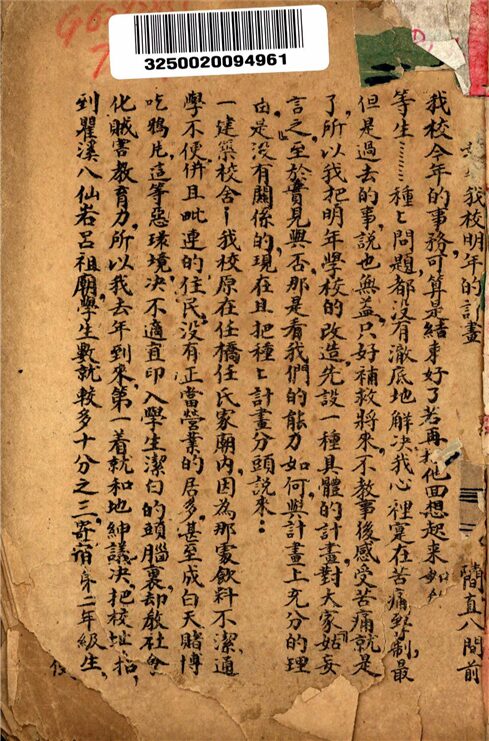 3250020094961
我校明年的計畫
我校今年的事務，可算是結束好了若再 他面想起來
等生………種々問題都沒有澈底地解决，我心裡寔在苦痛 制最
但是過去的事，說也無益，只好補救將來，不教事後感受苦痛就是
了，所以我把明年學校的改造，先設一種具體的計畫，對大家姑妄
言之，至於實見與否，那是看我們的能力如何，與計畫上充分的理
由，是沒有關係的，現在且把種々計畫分頭說來：
一建築校舍—我校原在任橋任氏家廟内，因為那處飲料不潔，通
學不便，併且毗連的住民，沒有正當營業的居多，甚至成白天賭博
吃鴉片，這等惡環境，决不適宜印入學生潔白的頭腦裏，却教社會
化賊害教育力，所以我去年到來，第一着就和地紳議决，把校址，招
到瞿溪八仙岩呂祖廟，學生數就較多十分之三，寄宿 第二年級生，